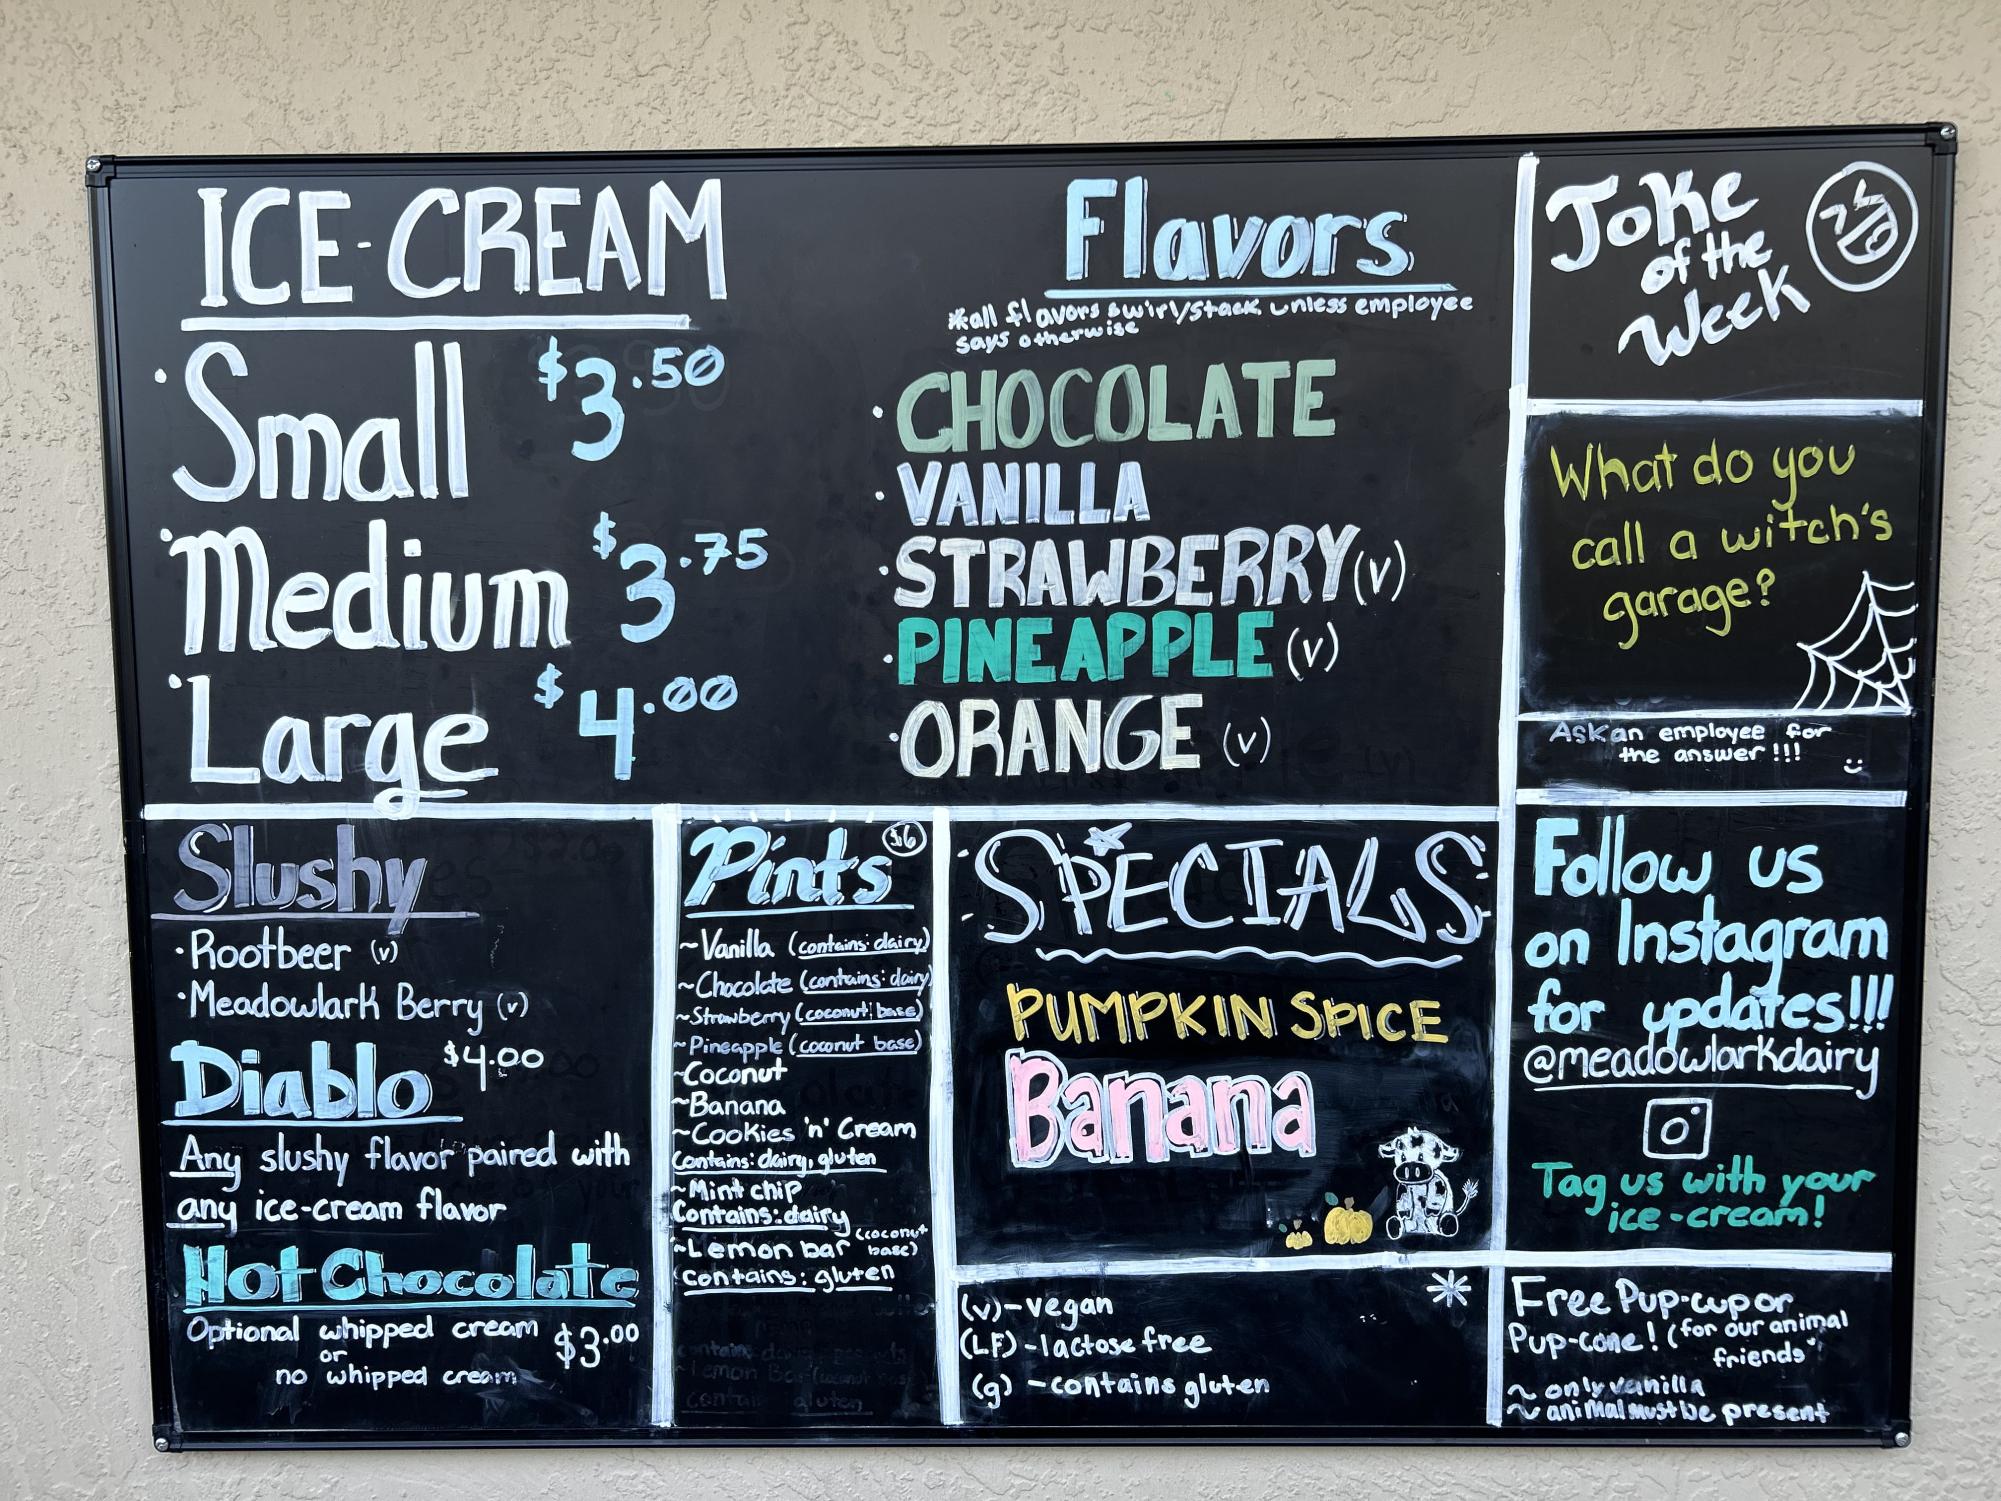 ICE-CREAM
• Small $3.50
• Medium $3.75
• Large $4.00
Flavors
*all flavors swirl/stack unless employee
says otherwise
• CHOCOLATE
• VANILLA
• STRAWBERRY (v)
• PINEAPPLE (v)
• ORANGE (v)
Joke
of the
Week
What do you
call a witch's
garage?
Ask an employee for
the answer!!!
Slushy
• Rootbeer (v)
• Meadowlark Berry (v)
Diablo $4.00
Any slushy flavor paired with
any ice-cream flavor
Hot Chocolate
Optional whipped cream $3.00
or
no whipped cream
Pints $6
~Vanilla (contains: dairy)
~Chocolate (contains: dairy)
~Strawberry (coconut base)
~Pineapple (coconut base)
~Coconut
~Banana
~Cookies 'n' Cream
Contains: dairy, gluten
~Mint chip
Contains: dairy
~Lemon bar (coconut
base)
contains: gluten
SPECIALS
PUMPKIN SPICE
Banana
*
(v) - vegan
(LF) - lactose free
(g) - contains gluten
Follow us
on Instagram
for updates!!!
@meadowlarkdairy
Tag us with your
ice-cream!
Free Pup-cup or
Pup-cone! (for our animal
friends)
~ only vanilla
~ animal must be present